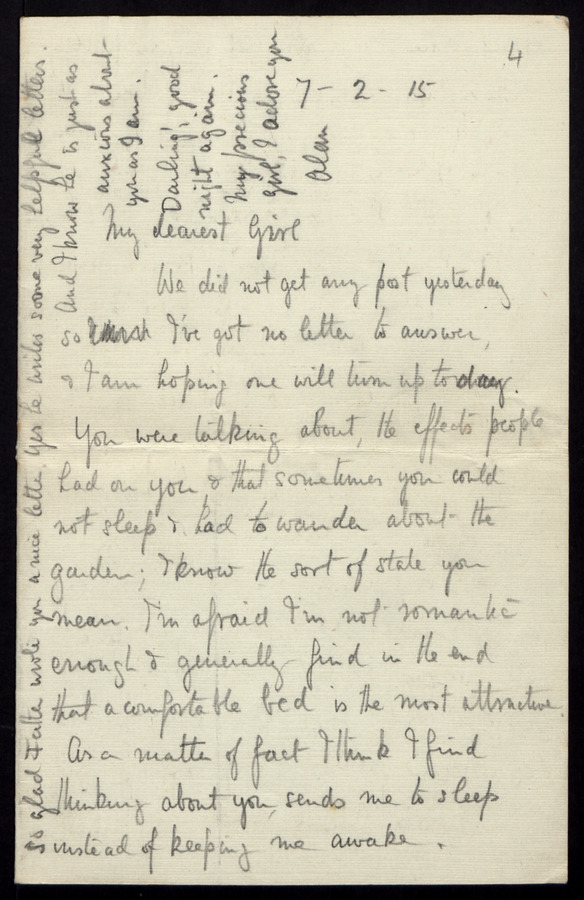 4
7 - 2 - 15
My dearest Girl
We did not get any post yesterday
so I've got no letter to answer,
& I am hoping one will turn up today.
You were talking about, the effects people
had on you, & that sometimes you could
not sleep & had to wander about the
garden; I know the sort of state you
mean. I'm afraid I'm not romantic
enough & generally find in the end
that a comfortable bed is the most attractive.
As a matter of fact I think I find
thinking about you, sends me to sleep
instead of keeping me awake.
so glad Father wrote you a nice letter. Yes he writes some very helpful letters.
And I know he is just as
anxious about
you as I am.
Darling, good
night again.
My precious
girl, I adore you
Alan